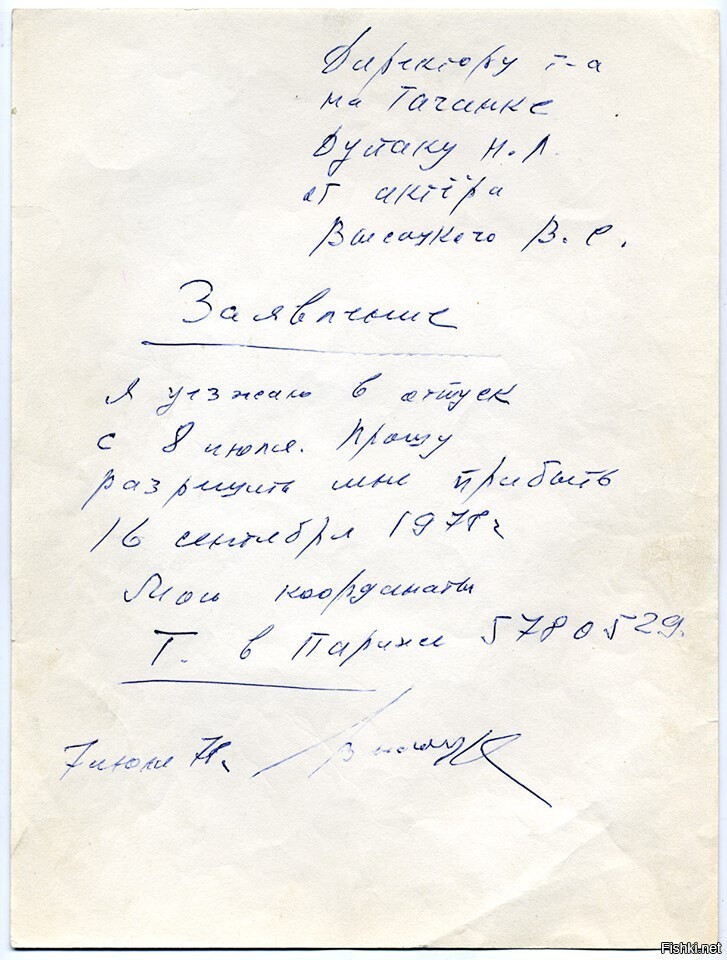 Директору т-а
на Таганке
Дупаку Н.Л.
от актёра
Высоцкого В.С.
Заявление
Я уезжаю в отпуск
с 8 июля. Прошу
разрешить мне прибыть
16 сентября 1978г
Мои координаты
Т. в Париже 5780529.
7 июля 78г.
Fishki.net